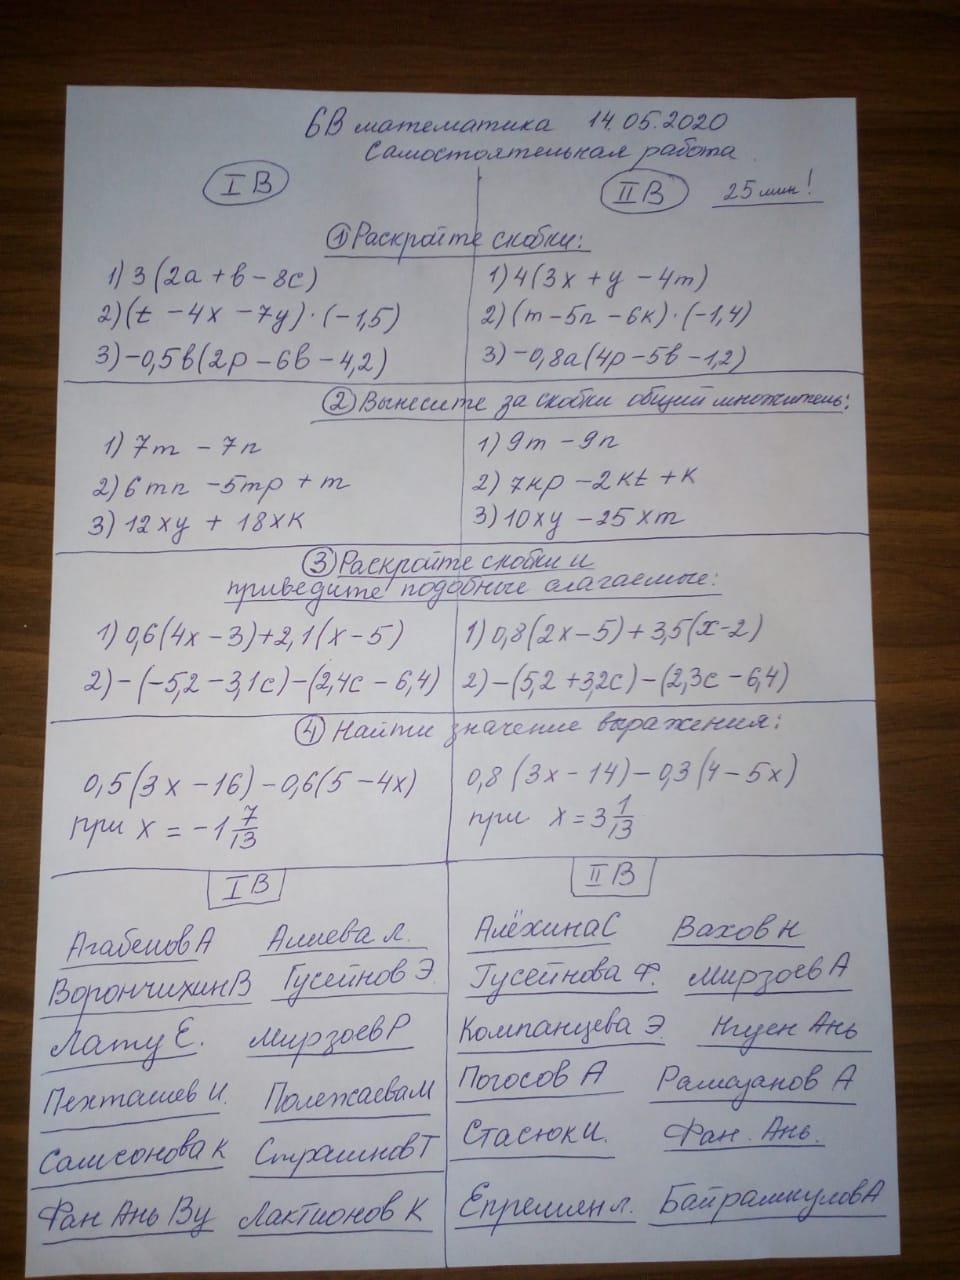 6В математика 14.05.2020
Самостоятельная работа
I В
II В 25 мин!
① Раскройте скобки:
1) 3(2a + b - 8c)
1) 4(3x + y - 4m)
2) (t - 4x - 7y) · (-1,5)
2) (m - 5n - 6k) · (-1,4)
3) -0,5b(2p - 6b - 4,2)
3) -0,8a(4p - 5b - 1,2)
② Вынесите за скобки общий множитель:
1) 7m - 7n
1) 9m - 9n
2) 6mn - 5mp + m
2) 7kp - 2kt + k
3) 12xy + 18xk
3) 10xy - 25xm
③ Раскройте скобки и
приведите подобные слагаемые:
1) 0,6(4x - 3) + 2,1(x - 5)
1) 0,8(2x - 5) + 3,5(x - 2)
2) -(-5,2 - 3,1c) - (2,4c - 6,4)
2) -(5,2 + 3,2c) - (2,3c - 6,4)
④ Найти значение выражения:
0,5(3x - 16) - 0,6(5 - 4x)
0,8(3x - 14) - 0,3(4 - 5x)
при x = -1 7/13
при x = 3 1/13
I В
II В
Агабеков А Алиева Л.
Алёхина С Вахов Н
Ворончихин В Гусейнов Э.
Гусейнова Ф. Мирзоев А
Лату Е. Мирзоев Р
Компанцева Э. Нгуен Ань
Пехташев И. Полежаева М
Погосов А Рамазанов А
Самсонова К Страшнов Т
Стасюк И. Фан. Ань.
Фан Ань Ву Лактионов К
Епремян Л. Байрамкулов А